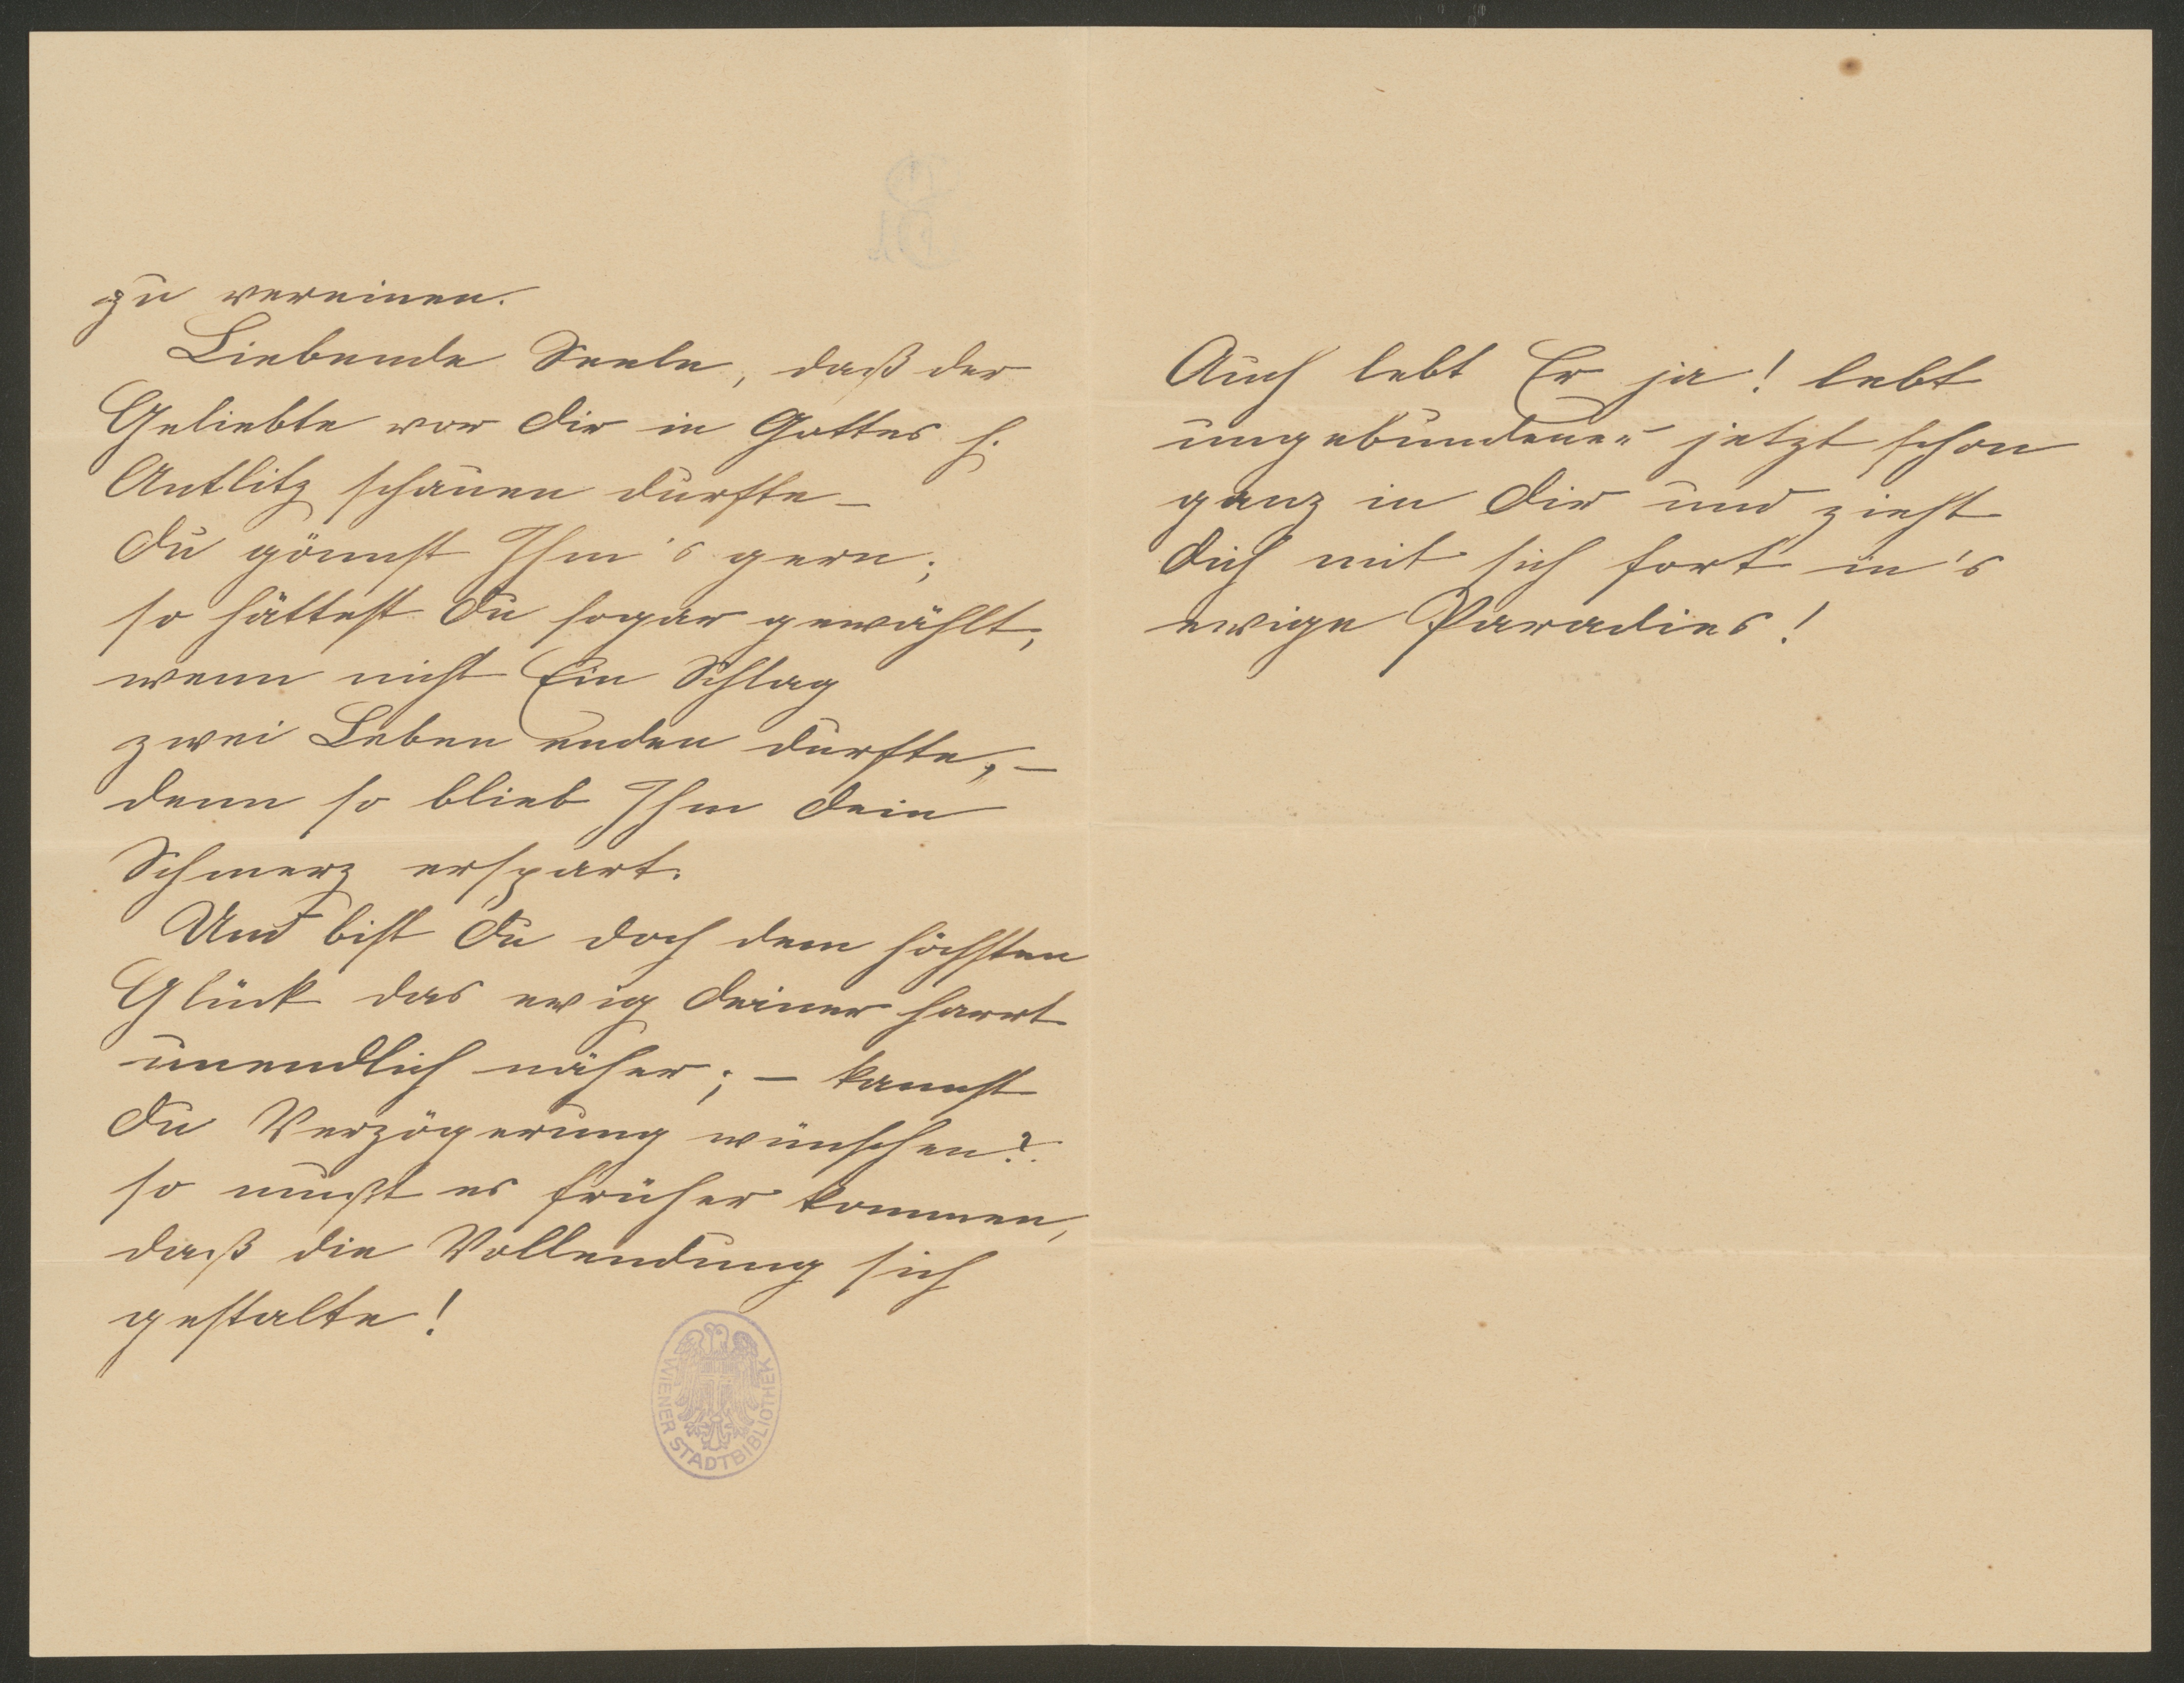 zu vereinen.
Liebende Seele, daß der
Geliebte vor Dir in Gottes h.
Antlitz schauen durfte –
Du gönnst Ihm's gern;
so hättest Du sogar gewählt,
wenn nicht Ein Schlag
zwei Leben enden durfte, –
denn so blieb Ihm Dein
Schmerz erspart.
Und bist Du doch dem höchsten
Glück das ewig Deiner harrt
unendlich näher; – kannst
Du Verzögerung wünschen?
so mußt es früher kommen,
daß die Vollendung sich
gestalte!
WIENER STADTBIBLIOTHEK
Auch lebt Er ja! lebt
jetzt schon
ganz in Dir und zieht
Dich mit sich fort in's
ewige Paradies!